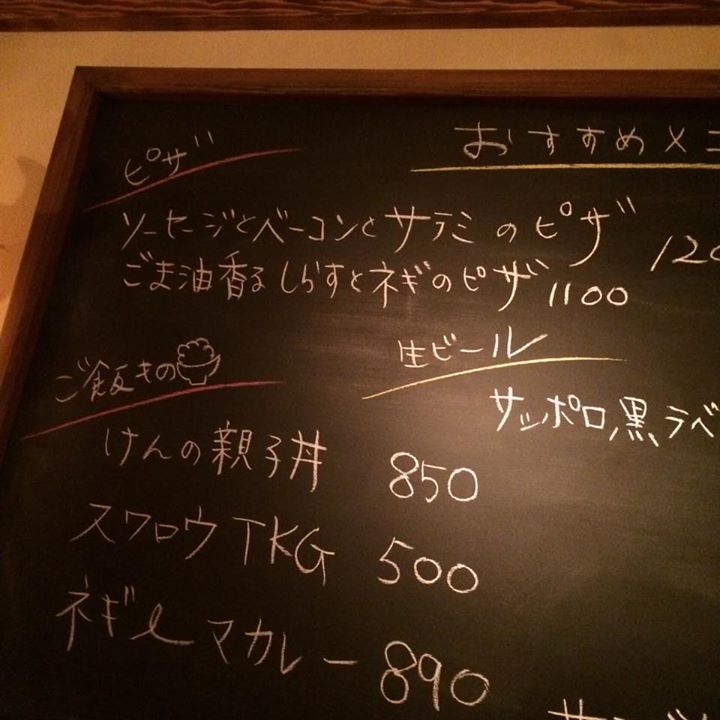 おすすめメニ
ピザ
ソーセージとベーコンとサラミのピザ 120
ごま油香るしらすとネギのピザ 1100
生ビール
サッポロ黒ラベ
ご飯もの
けんの親子丼 850
スワロウTKG 500
ネギ マカレー 890